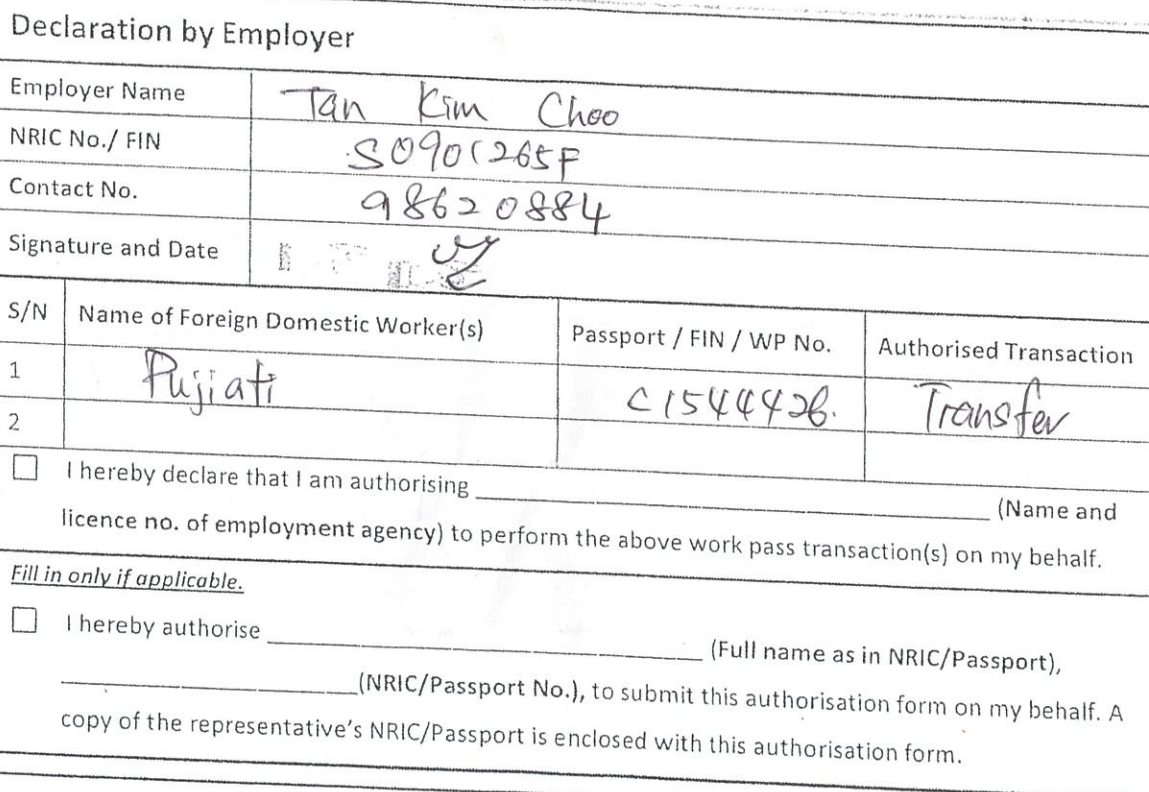 Declaration by Employer
Employer Name Tan Kim Choo
NRIC No./ FIN S0901265F
Contact No. 98620884
Signature and Date
S/N Name of Foreign Domestic Worker(s) Passport / FIN / WP No. Authorised Transaction
1 Pujiati C1544426. Transfer
2
I hereby declare that I am authorising (Name and
licence no. of employment agency) to perform the above work pass transaction(s) on my behalf.
Fill in only if applicable.
I hereby authorise (Full name as in NRIC/Passport),
(NRIC/Passport No.), to submit this authorisation form on my behalf. A
copy of the representative's NRIC/Passport is enclosed with this authorisation form.